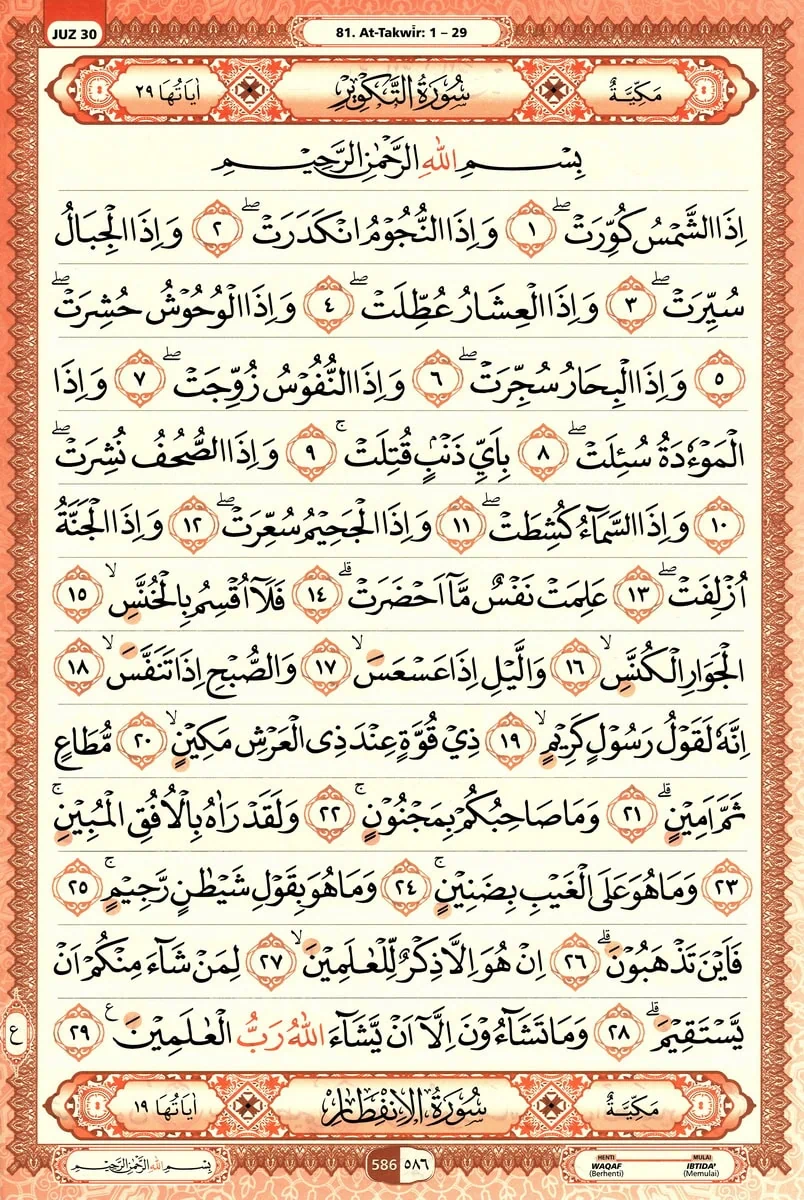 JUZ 30
81. At-Takwīr: 1 – 29
مَكِّيَّةٌ سُوْرَةُ التَّكْوِيْرِ اٰيَاتُهَا ٢٩
بِسْمِ اللّٰهِ الرَّحْمٰنِ الرَّحِيْمِ
اِذَا الشَّمْسُ كُوِّرَتْۖ ١ وَاِذَا النُّجُوْمُ انْكَدَرَتْۖ ٢ وَاِذَا الْجِبَالُ
سُيِّرَتْۖ ٣ وَاِذَا الْعِشَارُ عُطِّلَتْۖ ٤ وَاِذَا الْوُحُوْشُ حُشِرَتْۖ
٥ وَاِذَا الْبِحَارُ سُجِّرَتْۖ ٦ وَاِذَا النُّفُوْسُ زُوِّجَتْۖ ٧ وَاِذَا
الْمَوْءٗدَةُ سُىِٕلَتْۖ ٨ بِاَيِّ ذَنْۢبٍ قُتِلَتْۚ ٩ وَاِذَا الصُّحُفُ نُشِرَتْۖ
١٠ وَاِذَا السَّمَاۤءُ كُشِطَتْۖ ١١ وَاِذَا الْجَحِيْمُ سُعِّرَتْۖ ١٢ وَاِذَا الْجَنَّةُ
اُزْلِفَتْۖ ١٣ عَلِمَتْ نَفْسٌ مَّآ اَحْضَرَتْۗ ١٤ فَلَآ اُقْسِمُ بِالْخُنَّسِۙ ١٥
الْجَوَارِ الْكُنَّسِۙ ١٦ وَالَّيْلِ اِذَا عَسْعَسَۙ ١٧ وَالصُّبْحِ اِذَا تَنَفَّسَۙ ١٨
اِنَّهٗ لَقَوْلُ رَسُوْلٍ كَرِيْمٍۙ ١٩ ذِيْ قُوَّةٍ عِنْدَ ذِى الْعَرْشِ مَكِيْنٍۙ ٢٠ مُّطَاعٍ
ثَمَّ اَمِيْنٍۗ ٢١ وَمَا صَاحِبُكُمْ بِمَجْنُوْنٍۚ ٢٢ وَلَقَدْ رَاٰهُ بِالْاُفُقِ الْمُبِيْنِۚ
٢٣ وَمَا هُوَ عَلَى الْغَيْبِ بِضَنِيْنٍۚ ٢٤ وَمَا هُوَ بِقَوْلِ شَيْطٰنٍ رَّجِيْمٍۚ ٢٥
فَاَيْنَ تَذْهَبُوْنَۗ ٢٦ اِنْ هُوَ اِلَّا ذِكْرٌ لِّلْعٰلَمِيْنَۙ ٢٧ لِمَنْ شَاۤءَ مِنْكُمْ اَنْ
يَّسْتَقِيْمَۗ ٢٨ وَمَا تَشَاۤءُوْنَ اِلَّآ اَنْ يَّشَاۤءَ اللّٰهُ رَبُّ الْعٰلَمِيْنَ ࣖ ٢٩
ع
مَكِّيَّةٌ سُوْرَةُ الْاِنْفِطَارِ اٰيَاتُهَا ١٩
بِسْمِ اللّٰهِ الرَّحْمٰنِ الرَّحِيْمِ
586 ٥٨٦
HENTI WAQAF (Berhenti)
MULAI IBTIDA' (Memulai)